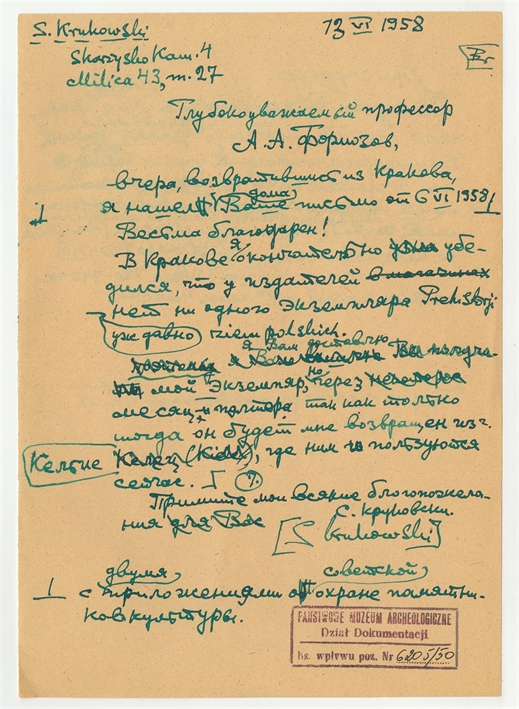 S. Krukowski
13 VI 1958
Skarżysko Kam. 4
Milica 43, m. 27
Br
Глубокоуважаемый профессор
А. А. Формозов,
вчера, возвратившись из Кракова,
дома
я нашел Ваше письмо от 6 VI 1958
Весьма благодарен!
В Кракове я окончательно убе-
дился, что у издателей в магазинах
нет ни одного экземпляра Prehistorji
уж давно ziem polskich.
я Вам доставлю
но
мой экземпляр, через
месяц и полтера так как только
тогда он будет мне возвращен из
Кельце (Kielc), где ним пользуются
сейчас.
Примите мои всякие благопожела-
ния для Вас
С. Круковски.
[S Krukowski]
двумя советской
с приложениями об охране памятни-
ков культуры.
PAŃSTWOWE MUZEUM ARCHEOLOGICZNE
Dział Dokumentacji
ks. wpływu poz. Nr 6205/50